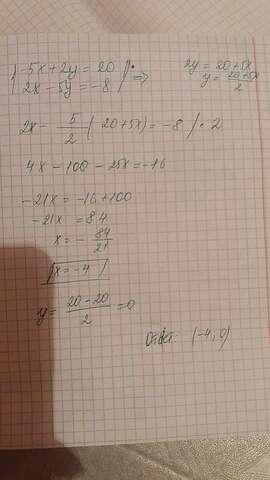 -5x+2y=20 | ⇒ 2y=20+5x
2x-5y=-8 y=20+5x/2
2x-5/2(20+5x)=-8 |·2
4x-100-25x=-16
-21x=-16+100
-21x=84
x=-84/21
x=-4
y=20-20/2=0
Ответ: (-4;0)